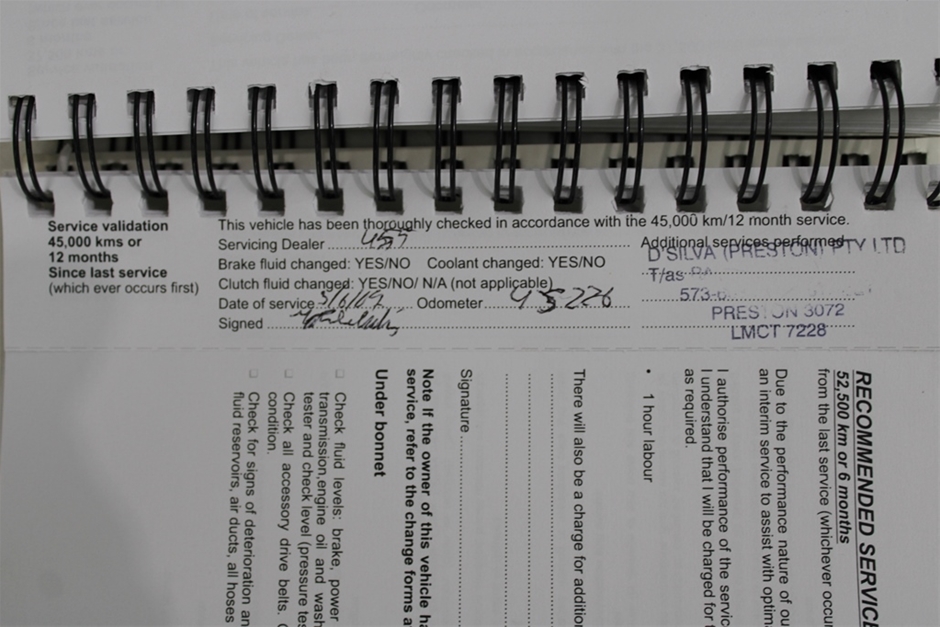 Service validation
45,000 kms or
12 months
Since last service
(which ever occurs first)
This vehicle has been thoroughly checked in accordance with the 45,000 km/12 month service.
Servicing Dealer
Brake fluid changed: YES/NO Coolant changed: YES/NO
Clutch fluid changed: YES/NO/ N/A (not applicable)
Date of service 5/6/09 Odometer 45226
Signed
Additional services performed
D'SILVA (PRESTON) PTY LTD
T/as
573-
PRESTON 3072
LMCT 7228
RECOMMENDED SERVICE
52,500 km or 6 months
from the last service (whichever occur
Due to the performance nature of ou
an interim service to assist with optim
I authorise performance of the servic
I understand that I will be charged for
as required.
• 1 hour labour
There will also be a charge for addition
Signature
Note If the owner of this vehicle ha
service, refer to the change forms a
Under bonnet
Check fluid levels: brake, power
transmission,engine oil and wash
tester and check level (pressure tes
Check all accessory drive belts.
condition.
Check for signs of deterioration an
fluid reservoirs, air ducts, all hoses